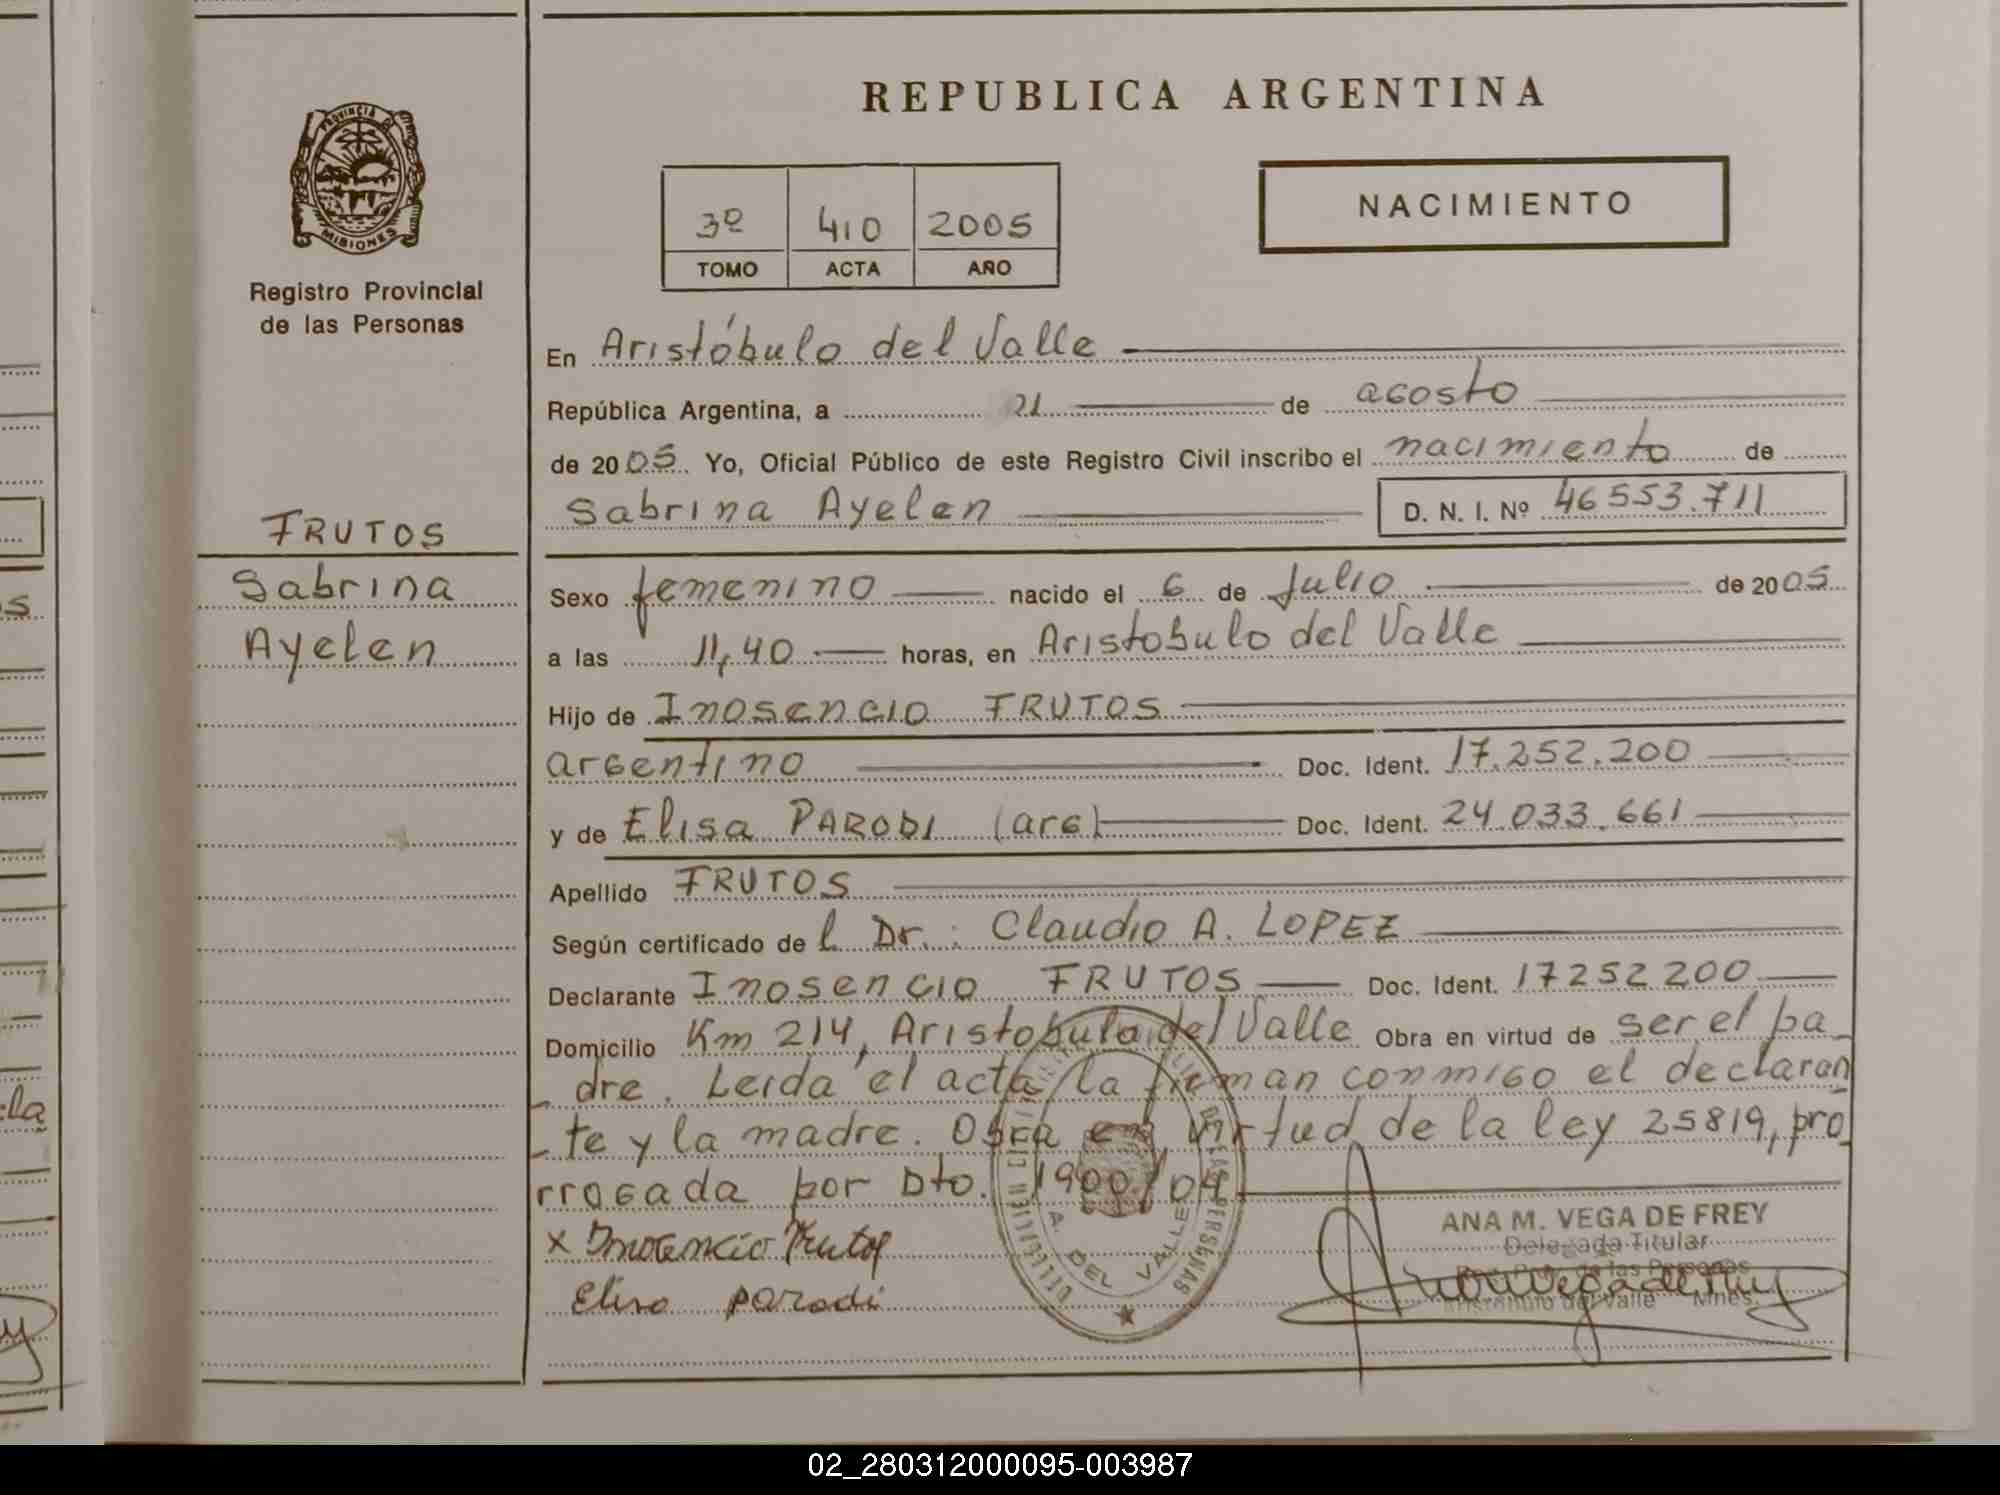 PROVINCIA DE
MISIONES
Registro Provincial
de las Personas
FRUTOS
Sabrina
Ayelen
REPUBLICA ARGENTINA
3º 410 2005
TOMO ACTA AÑO
NACIMIENTO
En Aristóbulo del Valle
República Argentina, a 21 de agosto
de 2005 Yo, Oficial Público de este Registro Civil inscribo el nacimiento de
Sabrina Ayelen D. N. I. Nº 46553.711
Sexo femenino nacido el 6 de Julio de 2005
a las 11,40 horas, en Aristobulo del Valle
Hijo de Inosencio FRUTOS
argentino Doc. Ident. 17.252.200
y de Elisa PARODI (arg) Doc. Ident. 24.033.661
Apellido FRUTOS
Según certificado de l Dr.: Claudio A. LOPEZ
Declarante Inosencio FRUTOS Doc. Ident. 17252200
Domicilio Km 214, Aristobulo del Valle Obra en virtud de ser el pa
dre. Leida el acta, la firman conmigo el declaran
te y la madre. Obra en virtud de la ley 25819, pro
rrogada por Dto. 1900/04
x Inocencio Frutos
Elisa parodi
A. DEL VALLE
ANA M. VEGA DE FREY
Delegada Titular
Reg. Prov. de las Personas
Aristóbulo del Valle Mnes.
02_280312000095-003987